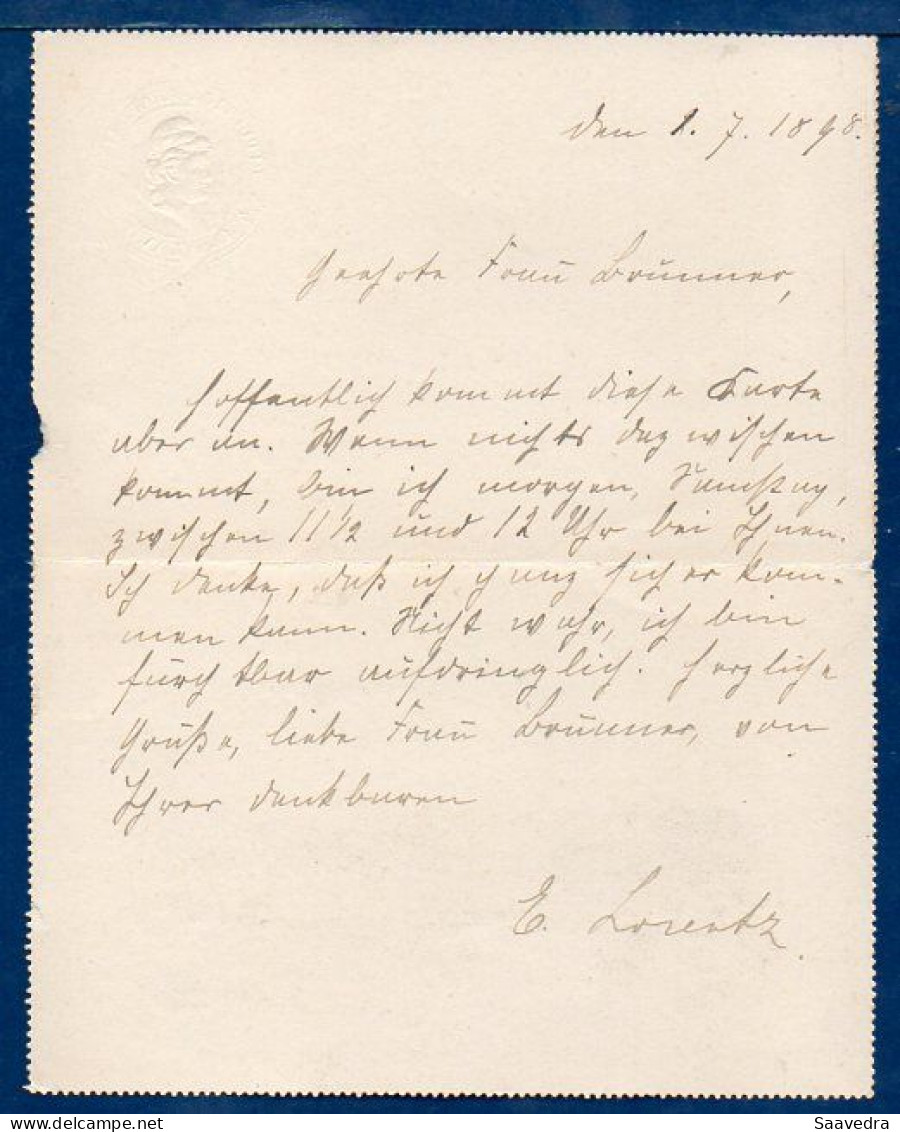 den 1. 7. 1898.
Geehrte Frau Brunner,
Hoffentlich kommt diese Karte
aber an. Wenn nichts dazwischen
kommt, bin ich morgen, Samstag,
zwischen 11 1/2 und 12 Uhr bei Ihnen.
Ich denke, daß ich ganz sicher kom-
men kann. Nicht wahr, ich bin
furchtbar aufdringlich. Herzliche
Grüße, liebe Frau Brunner, von
Ihrer dankbaren
E. Lorentz
Saavedra